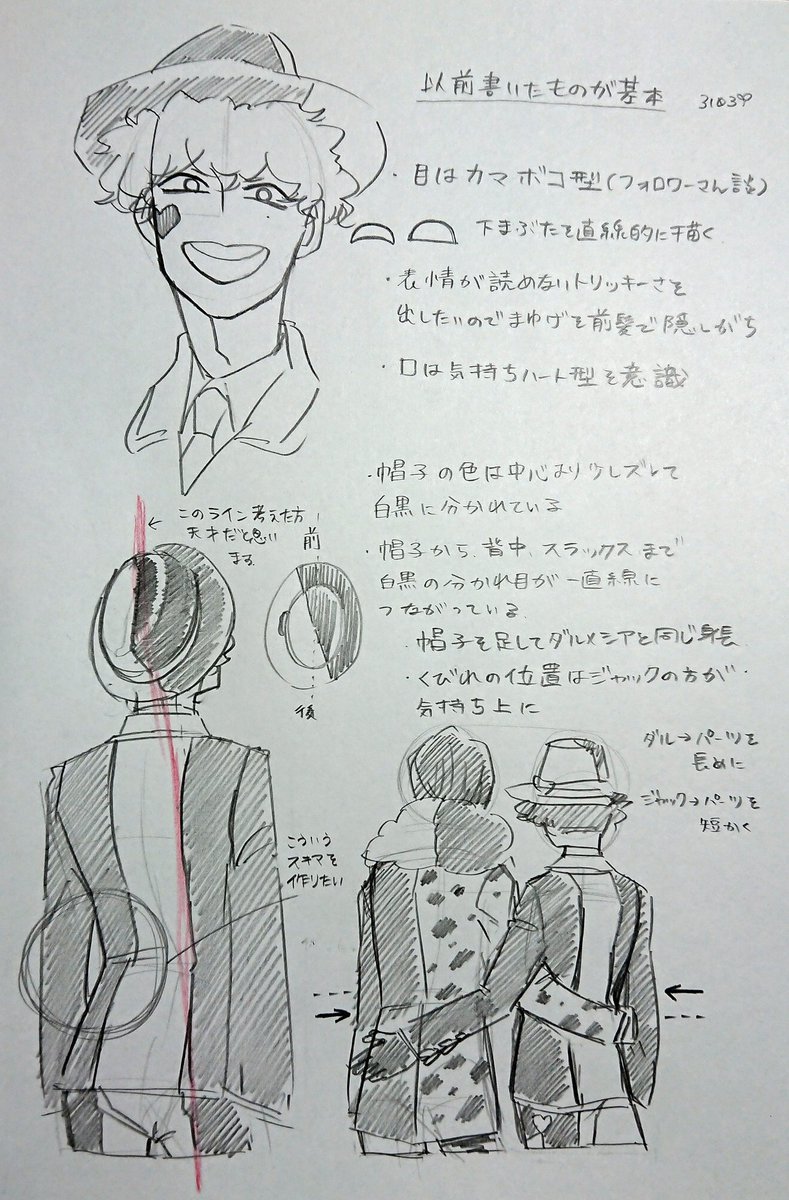 以前書いたものが基本
31039
・目はカマボコ型(フォロワーさん談)
下まぶたを直線的に描く
・表情が読めないトリッキーさを
出したいのでまゆげを前髪で隠しがち
・口は気持ちハート型を意識
・帽子の色は中心より少しズレて
白黒に分かれている
このライン考えた方
天才だと思い
まる
前
後
・帽子から、背中、スラックスまで
白黒の分かれ目が一直線に
つながっている
・帽子を足してダルメシアと同じ身長
・くびれの位置はジャックの方が
気持ち上に
ダル→パーツを
長めに
ジャック→パーツを
短かく
こういう
スキマを
作りたい